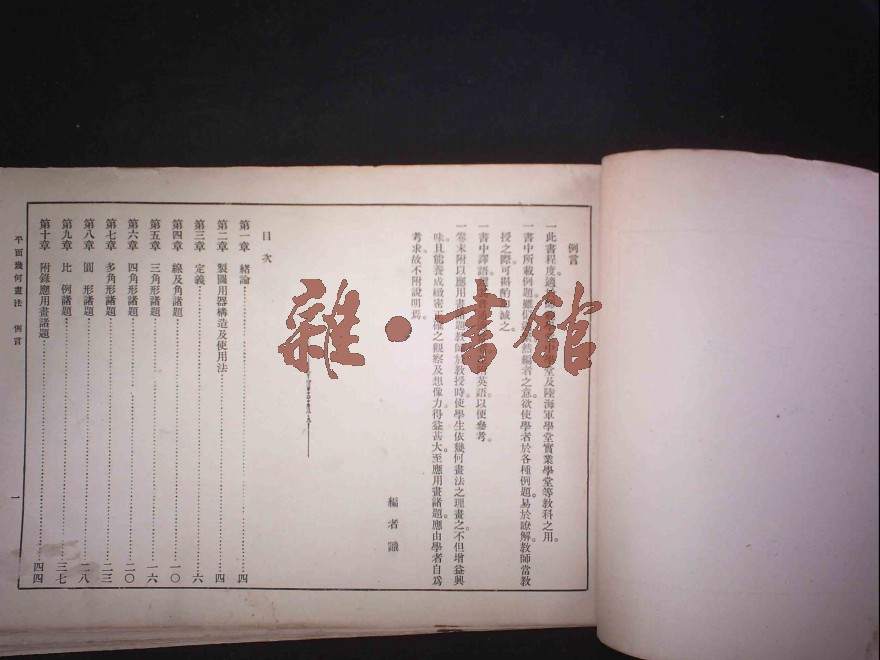 例言
一此書程度適
堂及陸海軍學堂實業學堂等教科之用。
一書中所載例題雖
然編者之意欲使學者於各種例題易於瞭解教師當教
授之際可斟酌加減之。
一書中譯語
英語以便參考。
一卷末附以應用畫諸題教師於教授時使學生依幾何畫法之理畫之不但增益興
味且能養成緻密正確之觀察及想像力得益甚大至應用畫諸題應由學者自爲
考求故不附說明焉。
編者識
目次
第一章 緒論 四
第二章 製圖用器構造及使用法 四
第三章 定義 六
第四章 線及角諸題 一〇
第五章 三角形諸題 一六
第六章 四角形諸題 二〇
第七章 多角形諸題 二三
第八章 圓形諸題 二八
第九章 比例諸題 三七
第十章 附錄應用畫諸題 四四
平面幾何畫法 例言 一
雜·書館